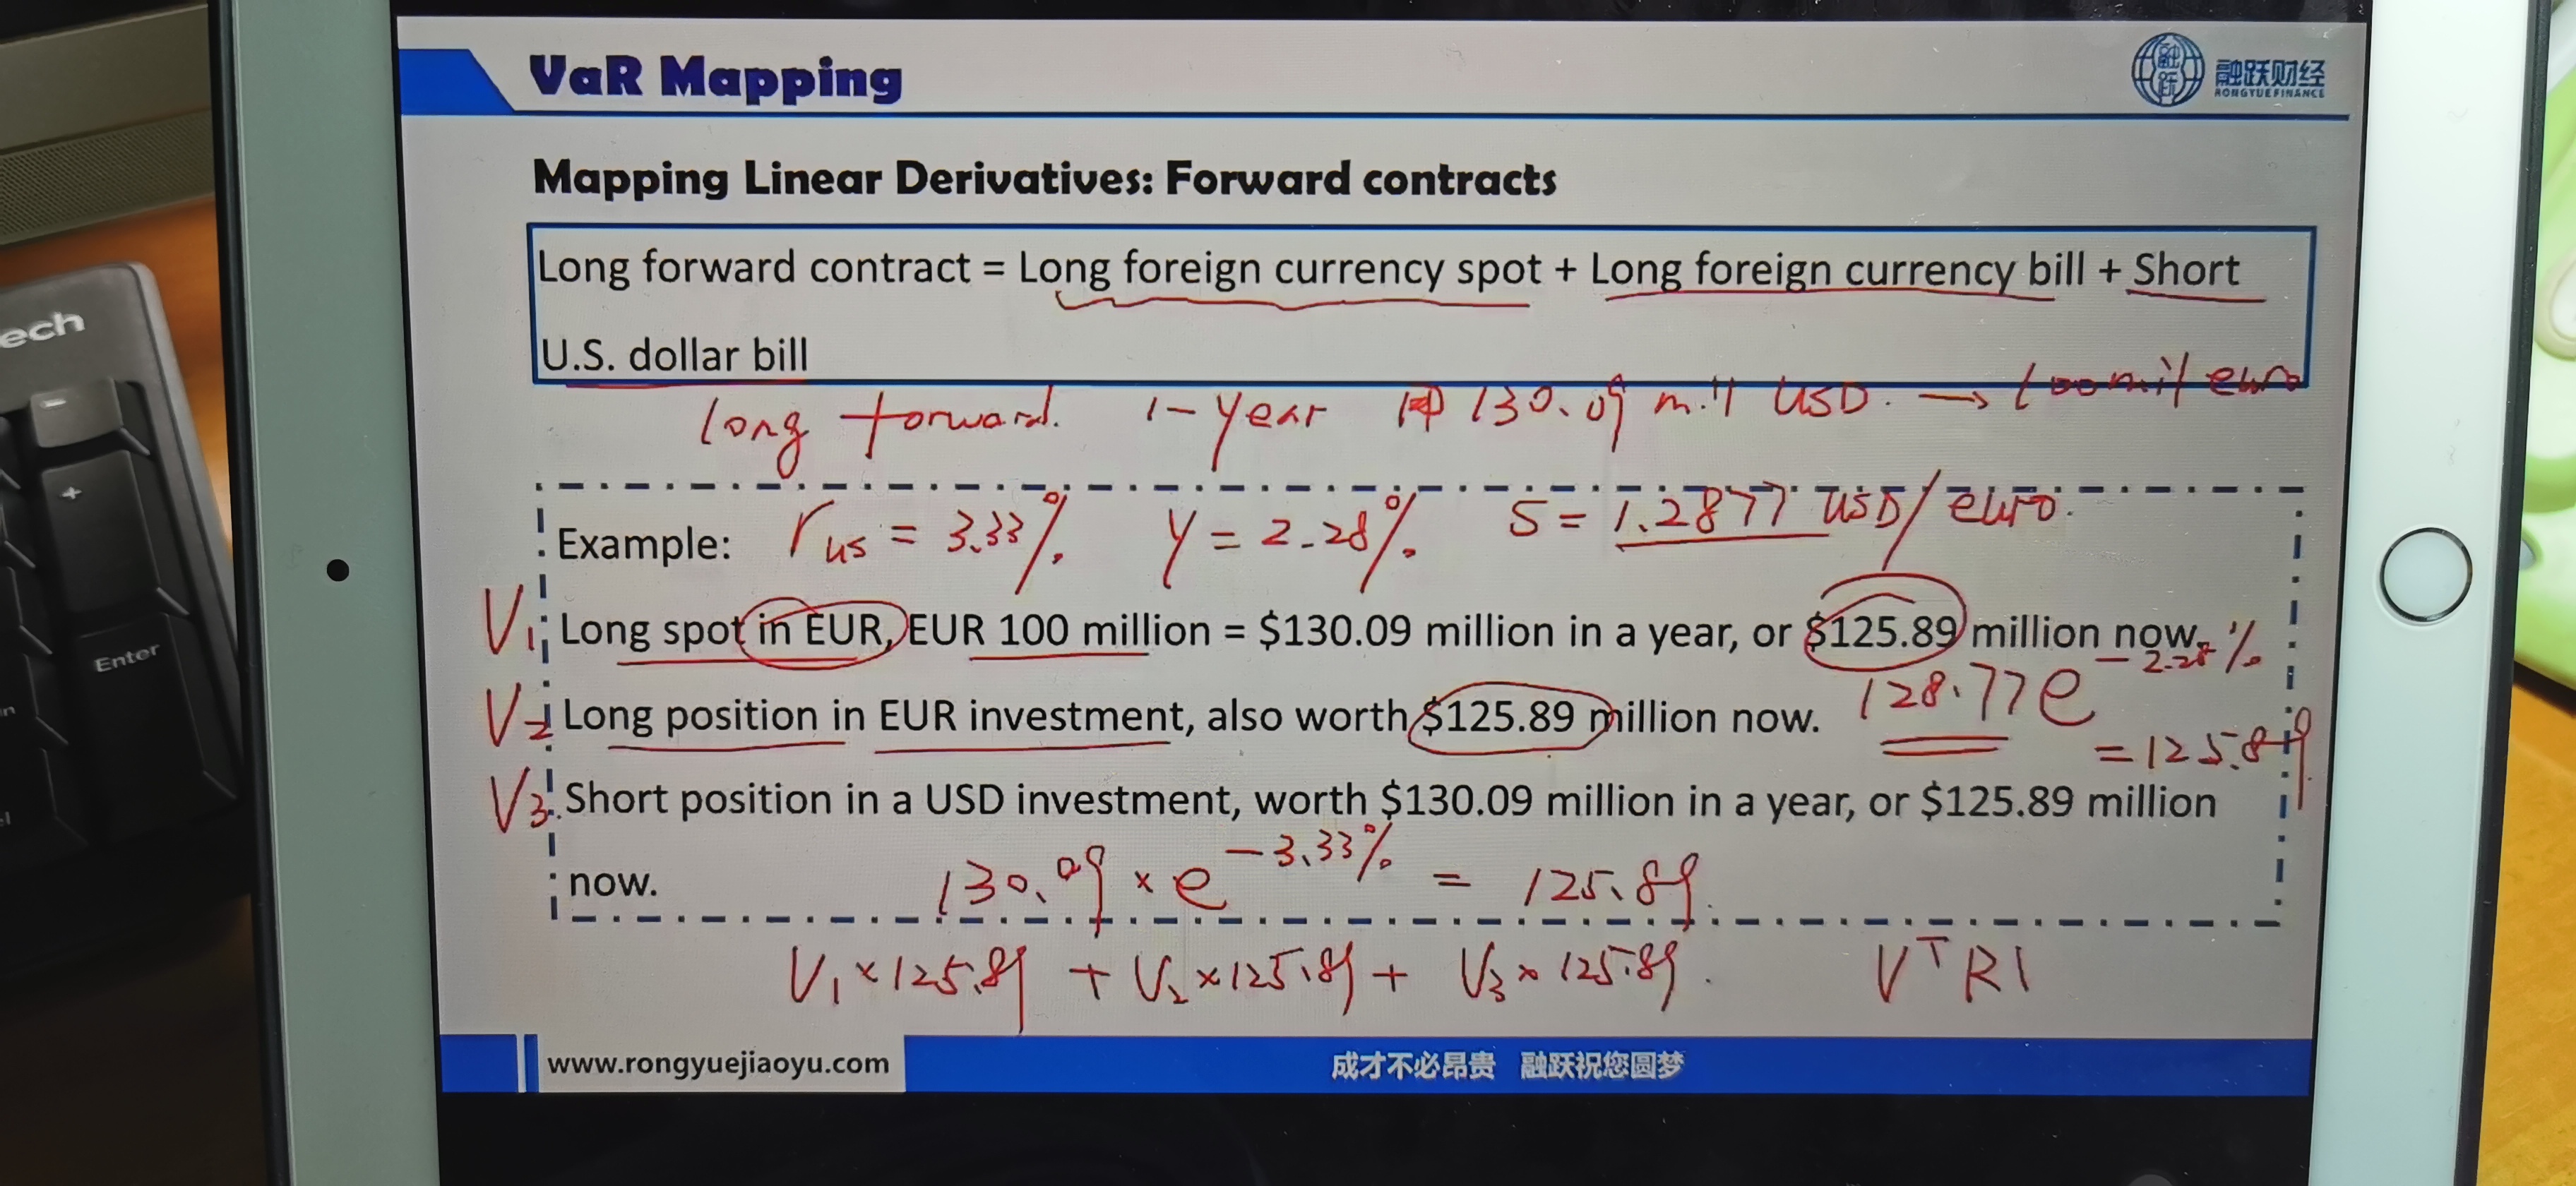 VaR Mapping
融跃财经
RONGYUEFINANCE
Mapping Linear Derivatives: Forward contracts
Long forward contract = Long foreign currency spot + Long foreign currency bill + Short
U.S. dollar bill
long forward. 1-year 130.09 mil USD. → 100mil euro
Example: r us = 3.33%. y = 2.28%. S = 1.2877 USD/euro.
V1 Long spot in EUR, EUR 100 million = $130.09 million in a year, or $125.89 million now.
V2 Long position in EUR investment, also worth $125.89 million now. 128.77e -2.28%
= 125.89
V3 Short position in a USD investment, worth $130.09 million in a year, or $125.89 million
now. 130.09 × e -3.33% = 125.89.
V1 × 125.89 + V2 × 125.89 + V3 × 125.89. V^T R V
www.rongyuejiaoyu.com
成才不必昂贵 融跃祝您圆梦
ech
-
+
Enter